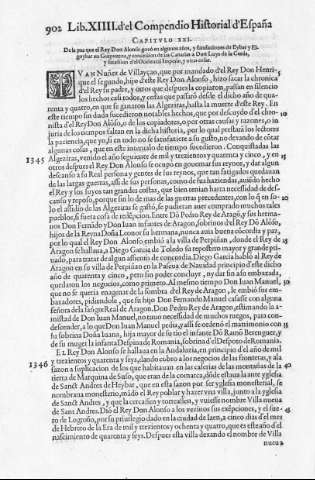 902 Lib.XIIII.d'el Compendio Historial d'España
CAPITVLO XXI.
De la paz que el Rey Don Alonso gozó en algunos años, y fundaciones de Eybar y El-
goybar en Guipuzcoa, y concession de las Canarias a Don Luys de la Cerda,
y sucession en el Oriental Imperio, y otras cosas.
IVAN Nuñez de Villayçan, que por mandado d'el Rey Don Henri-
que el segundo, hijo d'este Rey Don Alonso hizo sacar la chronica
d'el Rey su padre, y otros que despues la copiaron, passan en silencio
los hechos casi todos, y cosas que passaron desde el dicho año de qua-
renta y quatro, en que se ganaron las Algeziras, hasta la muerte d'este Rey. En
este tiempo sin duda sucedieron notables hechos, que por descuydo d'el chro-
nista d'el Rey Don Alonso, o de los copiadores, o por otras causas y razones, o in-
juria de los tiempos faltan en la dicha historia, por lo qual prestará los lectores
la paciencia, que yo, si en todo no se satisfaziere a su gusto, no devando de tocar
algunas cosas, que en este interualo de tiempo sucedieron. Conquistadas las
1345 Algeziras, venido el año seguiente de mil y trezientos y quarenta y cinco, y en
otros despues el Rey Don Alonso se ocupó en gouernar sus reynos, y dar algun
descanso a su Real persona y gentes de sus reynos, que tan fatigados quedauan
de las largas guerras, assi de sus personas, como de sus haziendas, auiendo hecho
el Rey y los suyos tan grandes costas, que bien tenian harta necessidad de des-
canso y reposo, porque sin lo de mas de las guerras precedentes, con lo q̃ en so-
lo el assidio de las Algeziras se gastó, se pudieran auer comprado muchos tales
pueblos, si fuera cosa de redempcion. Entre Dõ Pedro Rey de Aragõ, y sus herma-
nos Don Fernãdo y Don Iuan infantes de Aragon, sobrinos d'el Rey Dõ Alõso,
hijos de la Reyna Doña Leonor su hermana, nunca auia buena cõcordia y paz,
por lo qual el Rey Don Alonso embió a la villa de Perpiñan, donde el Rey de
Aragon se hallaua, a Diego Garcia de Toledo su repostero mayor y grande pri-
uado, para tratar de algun assiento de concordia. Diego Garcia habló al Rey de
Aragon en su villa de Perpiñan en la Pascua de Nauidad principio d'este dicho
año de quarenta y cinco, pero sin poder concluyr, ny dar fin a su embaxada,
quedaron los negocios, como primero. Al mesmo tiempo Don Iuan Manuel,
que no se queria enagenar de la sombra d'el Rey de Aragon, le embió sus em-
baxadores, pidiendole, que su hijo Don Fernando Manuel casasse con alguna
señora de la sangre Real de Aragon. Don Pedro Rey de Aragon, estimando la a-
mistad de Don Iuan Manuel, no tuuo necessidad de muchos ruegos, para con-
descender, a lo que Don Iuan Manuel pedia, y assi se cõcertó el matrimonio con
su sobrina Doña Iuana, hija mayor de su tio el infante Dõ Ramõ Berenguer, y
de su muger la infanta Despina de Romania, sobrina d'el Despoto de Romania.
EL Rey Don Alonso se hallaua en Andaluzia, en principio d'el año de mil
1346 y trezientos y quarenta y seys, dando cobro a los negocios de las fronteras, y alli
sazon a suplicacion de los que habitauan en las caserias de las montañas de la
tierra de Marquina de Suso, que eran de la comarca, dõde estaua la ante yglesia
de Sanct Andres de Heybar, que en esta sazon por ser yglesia monesterial, se
nombraua monesterio, mãdó el Rey poblar y hazer vna villa, junto a la yglesia
de Sanct Andres, y que la cercassen y torreassen, y vuiesse nombre Villa nueua
de Sanct Andres. Dió el Rey Don Alonso a los vezinos sus exempciones, y el fue-
ro de Logroño, por su priuilegio dado en la ciudad de Iaen, a cinco dias d'el mes
de Hebrero de la Era de mil y trezientos y ochenta y quatro, que es este año d'el
nascimiento de quarenta y seys. Despues esta villa dexando el nombre de Villa
nueua